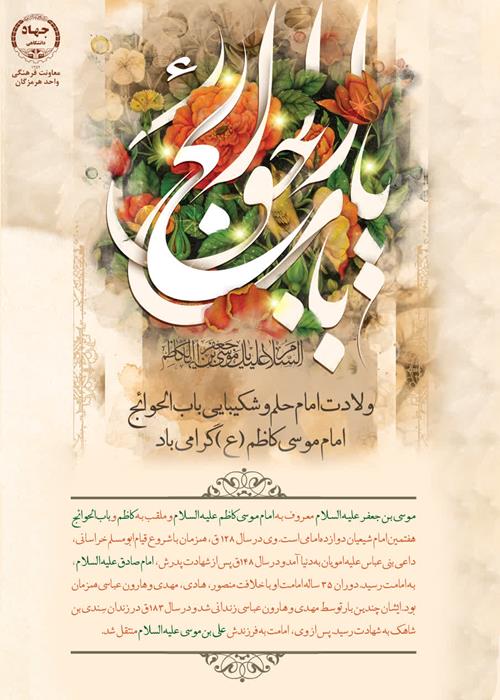 جهاد
دانشگاهی
معاونت فرهنگی
واحد هرمزگان
یا باب الحوائج
السلام علیک یا موسی بن جعفر الکاظم
ولادت امام حلم و شکیبایی باب الحوائج
امام موسی کاظم (ع) گرامی باد
موسی بن جعفر علیه السلام معروف به امام موسی کاظم علیه السلام و ملقب به کاظم و باب الحوائج
هفتمین امام شیعیان دوازده امامی است. وی در سال ۱۲۸ ق، همزمان با شروع قیام ابومسلم خراسانی،
داعی بنی عباس علیه امویان به دنیا آمد و در سال ۱۴۸ق پس از شهادت پدرش، امام صادق علیه السلام،
به امامت رسید. دوران ۳۵ ساله امامت او با خلافت منصور، هادی، مهدی و هارون عباسی همزمان
بود. ایشان چندین بار توسط مهدی و هارون عباسی زندانی شد و در سال ۱۸۳ق در زندان سندی بن
شاهک به شهادت رسید. پس از وی، امامت به فرزندش علی بن موسی علیه السلام منتقل شد.